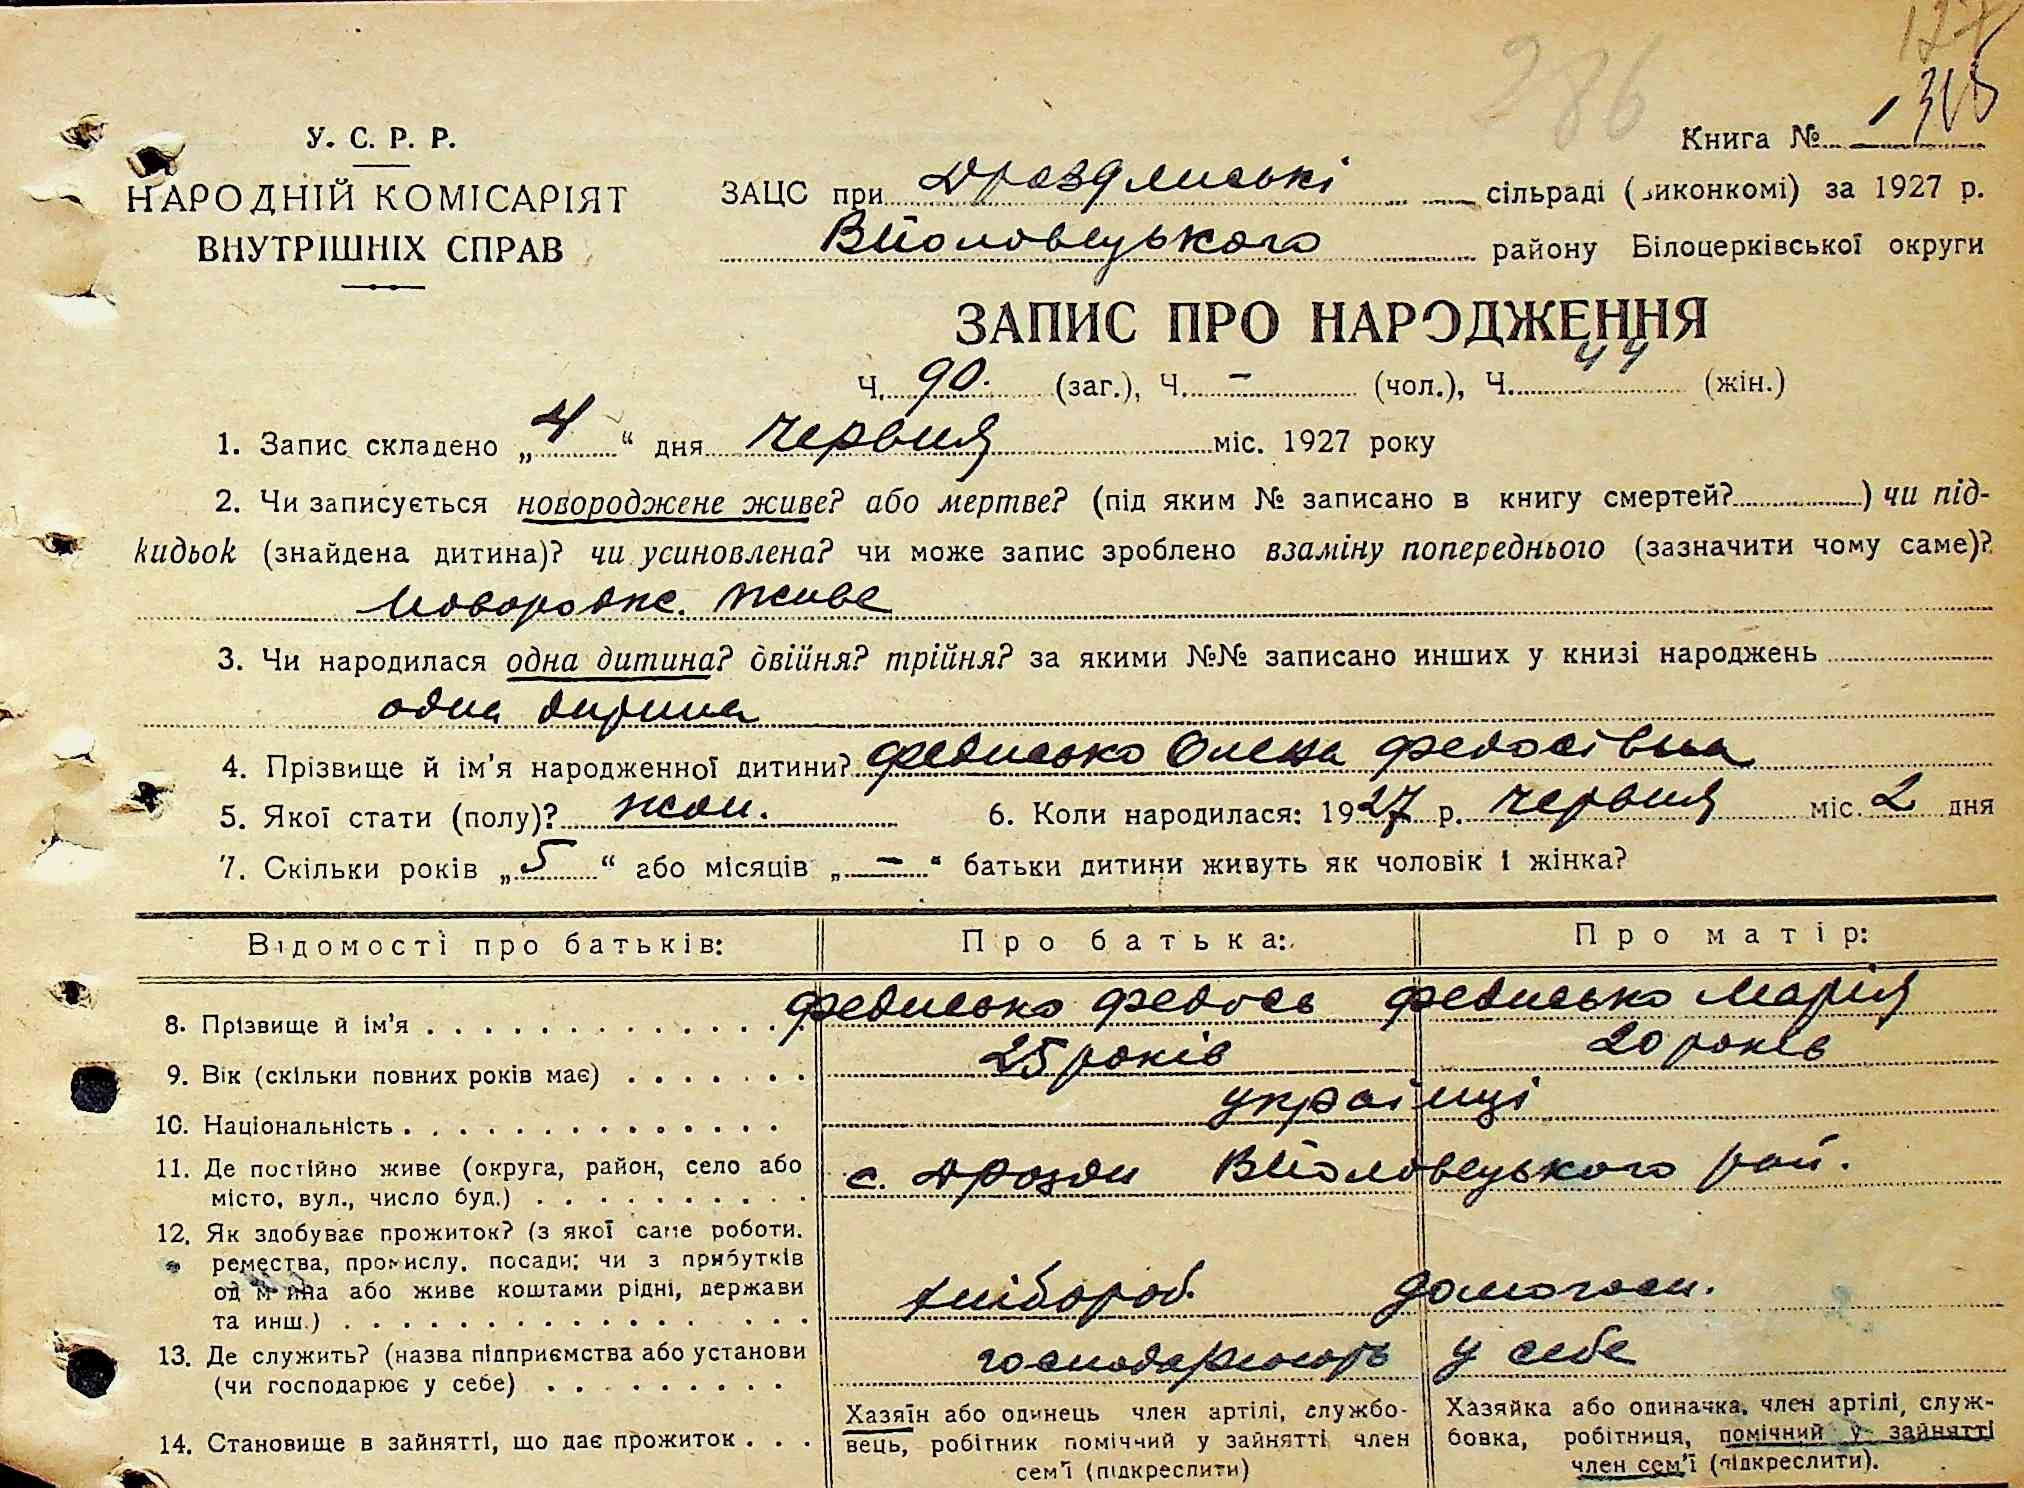 286
127
318
У. С. Р. Р.
НАРОДНІЙ КОМІСАРІЯТ
ВНУТРІШНІХ СПРАВ
Книга № 1
ЗАЦС при Дроздянські сільраді (виконкомі) за 1927 р.
району Білоцерківської округи
ЗАПИС ПРО НАРОДЖЕННЯ
Ч. 90. (заг.), Ч. – (чол.), Ч. 44 (жін.)
1. Запис складено „4“ дня червня міс. 1927 року
2. Чи записується новороджене живе? або мертве? (під яким № записано в книгу смертей?) чи під-
кидьок (знайдена дитина)? чи усиновлена? чи може запис зроблено взаміну попереднього (зазначити чому саме)?
новородже. живе
3. Чи народилася одна дитина? двійня? трійня? за якими №№ записано инших у книзі народжень
одна дитина
4. Прізвище й ім'я народженної дитини? Федисько Олена Федосівна
5. Якої стати (полу)? жон. 6. Коли народилася: 1927 р. червня міс. 2 дня
7. Скільки років „5“ або місяців „–“ батьки дитини живуть як чоловік і жінка?
Відомості про батьків: Про батька: Про матір:
8. Прізвище й ім'я Федисько Федось Федисько Марія
9. Вік (скільки повних років має) 25 років 20 років
10. Національність українці
11. Де постійно живе (округа, район, село або
місто, вул., число буд.) с. Дрозди рай.
12. Як здобуває прожиток? (з якої саме роботи,
ремества, промислу, посади; чи з прибутків
од майна або живе коштами рідні, держави
та инш.) хлібороб. домогосп.
13. Де служить? (назва підприємства або установи
(чи господарює у себе) господарюють у себе
14. Становище в зайнятті, що дає прожиток
Хазяїн або одинець член артілі, службо-
вець, робітник помічний у зайнятті член
сем'ї (підкреслити)
Хазяйка або одиначка, член артілі, служ-
бовка, робітниця, помічний у зайнятті
член сем'ї (підкреслити).